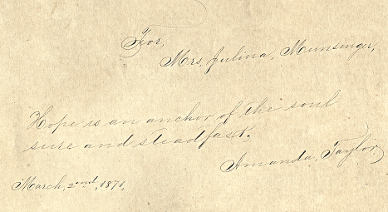 For,
Mrs, Julina, Munsinger,
Hope is an anchor of the soul
sure and steadfast.
Amanda, Taylor
March, 2nd, 1871,